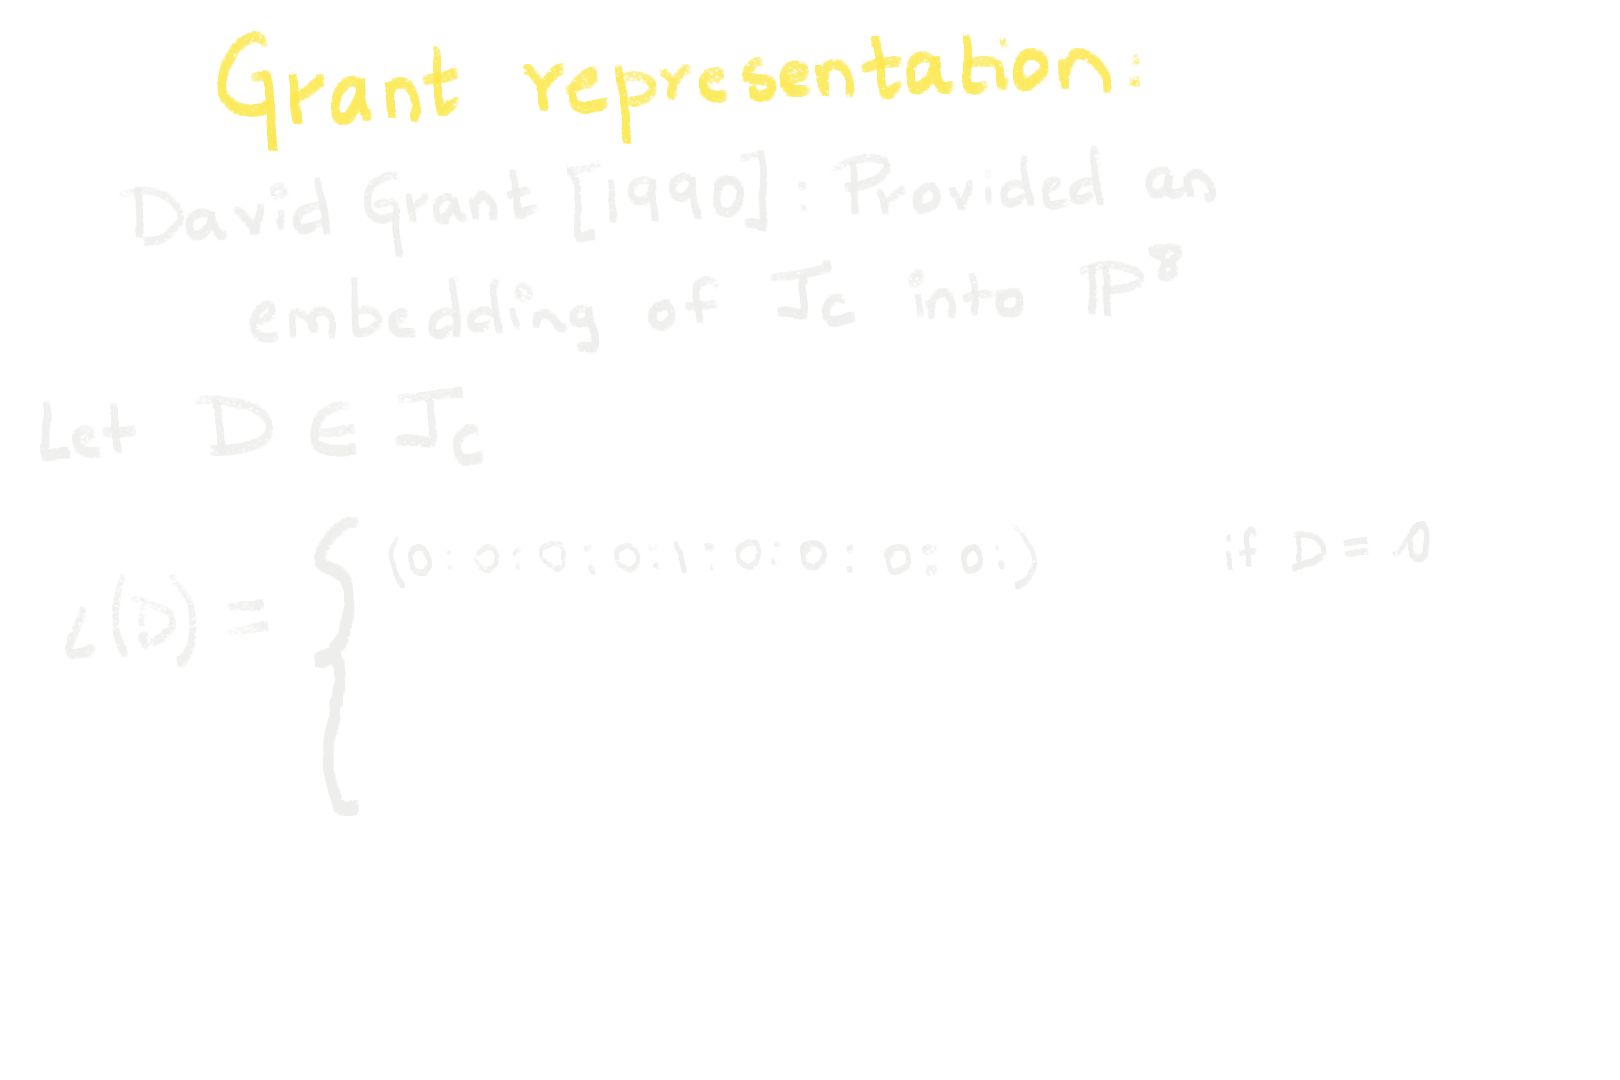 Grant representation:
David Grant [1990] : Provided an
embedding of J_C into ℙ^8
Let D ∈ J_C
ι(D) = { (0 : 0 : 0 : 0 : 1 : 0 : 0 : 0 : 0 : ) if D = 0